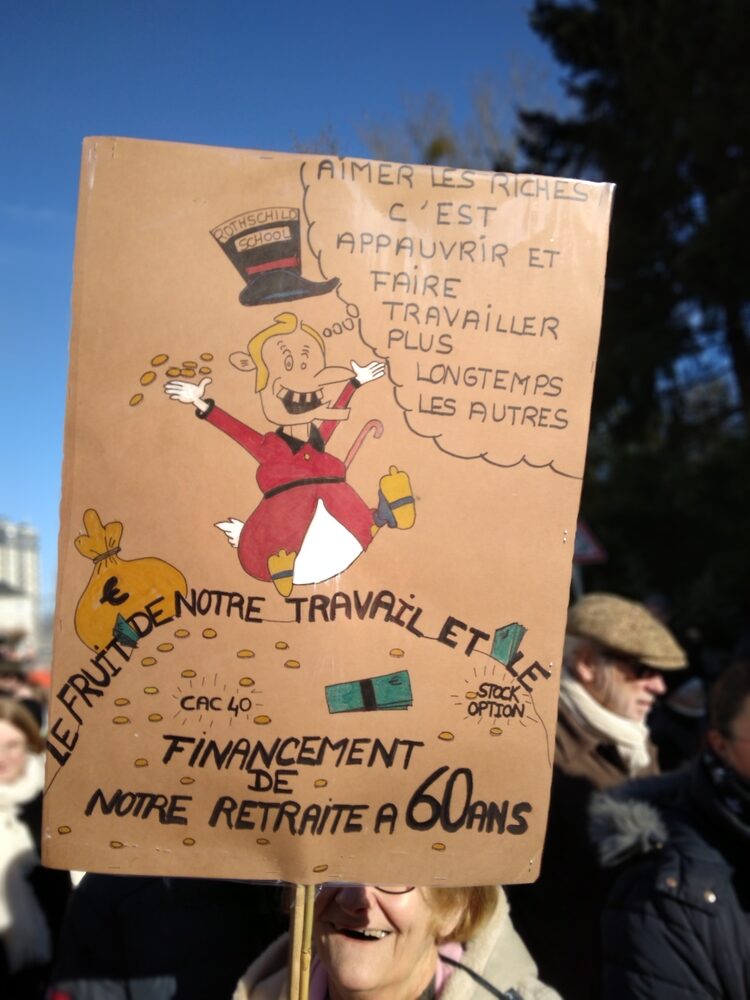 AIMER LES RICHES
C'EST
APPAUVRIR ET
FAIRE
TRAVAILLER
PLUS
LONGTEMPS
LES AUTRES
ROTHSCHILD
SCHOOL
€
LE FRUIT DE NOTRE TRAVAIL ET LE
CAC 40
€
STOCK
OPTION
FINANCEMENT
DE
NOTRE RETRAITE A 60 ANS